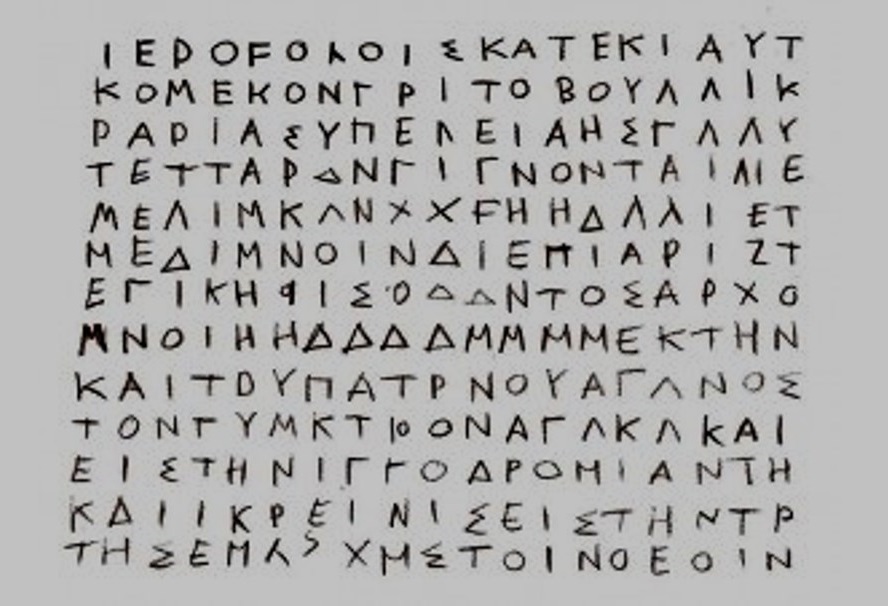 ΙΕΡΟFΟΛΟΙΣΚΑΤΕΚΙΑΥΤ
ΚΟΜΕΚΟΝΓΡΙΤΟΒΟΥΛΛΙΚ
ΡΑΡΙΑΣΥΠΕΛΕΙΑΗΣΓΛΛΥ
ΤΕΤΤΑΡΔΝΓΙΓΝΟΝΤΑΙΛΙΕ
ΜΕΛΙΜΚΛΝΧΧFΗΗΔΛΛΙΕΤ
ΜΕΔΙΜΝΟΙΝΔΙΕΠΙΑΡΙΖΤ
ΕΓΙΚΗΦΙΣΟΔΔΝΤΟΣΑΡΧΟ
ΜΝΟΙΗΗΔΔΔΔΜΜΜΜΕΚΤΗΝ
ΚΑΙΤΟΥΠΑΤΡΝΟΥΑΓΛΝΟΣ
ΤΟΝΓΥΜΚΤΙΟΟΝΑΓΛΚΛΚΑΙ
ΕΙΣΤΗΝΙΓΓΟΔΡΟΜΙΑΝΤΗ
ΚΔΙΙΚΡΕΙΝΙΣΕΙΣΤΗΝΤΡ
ΤΗΣΕΜΧΜΣΤΟΙΝΟΕΟΙΝ